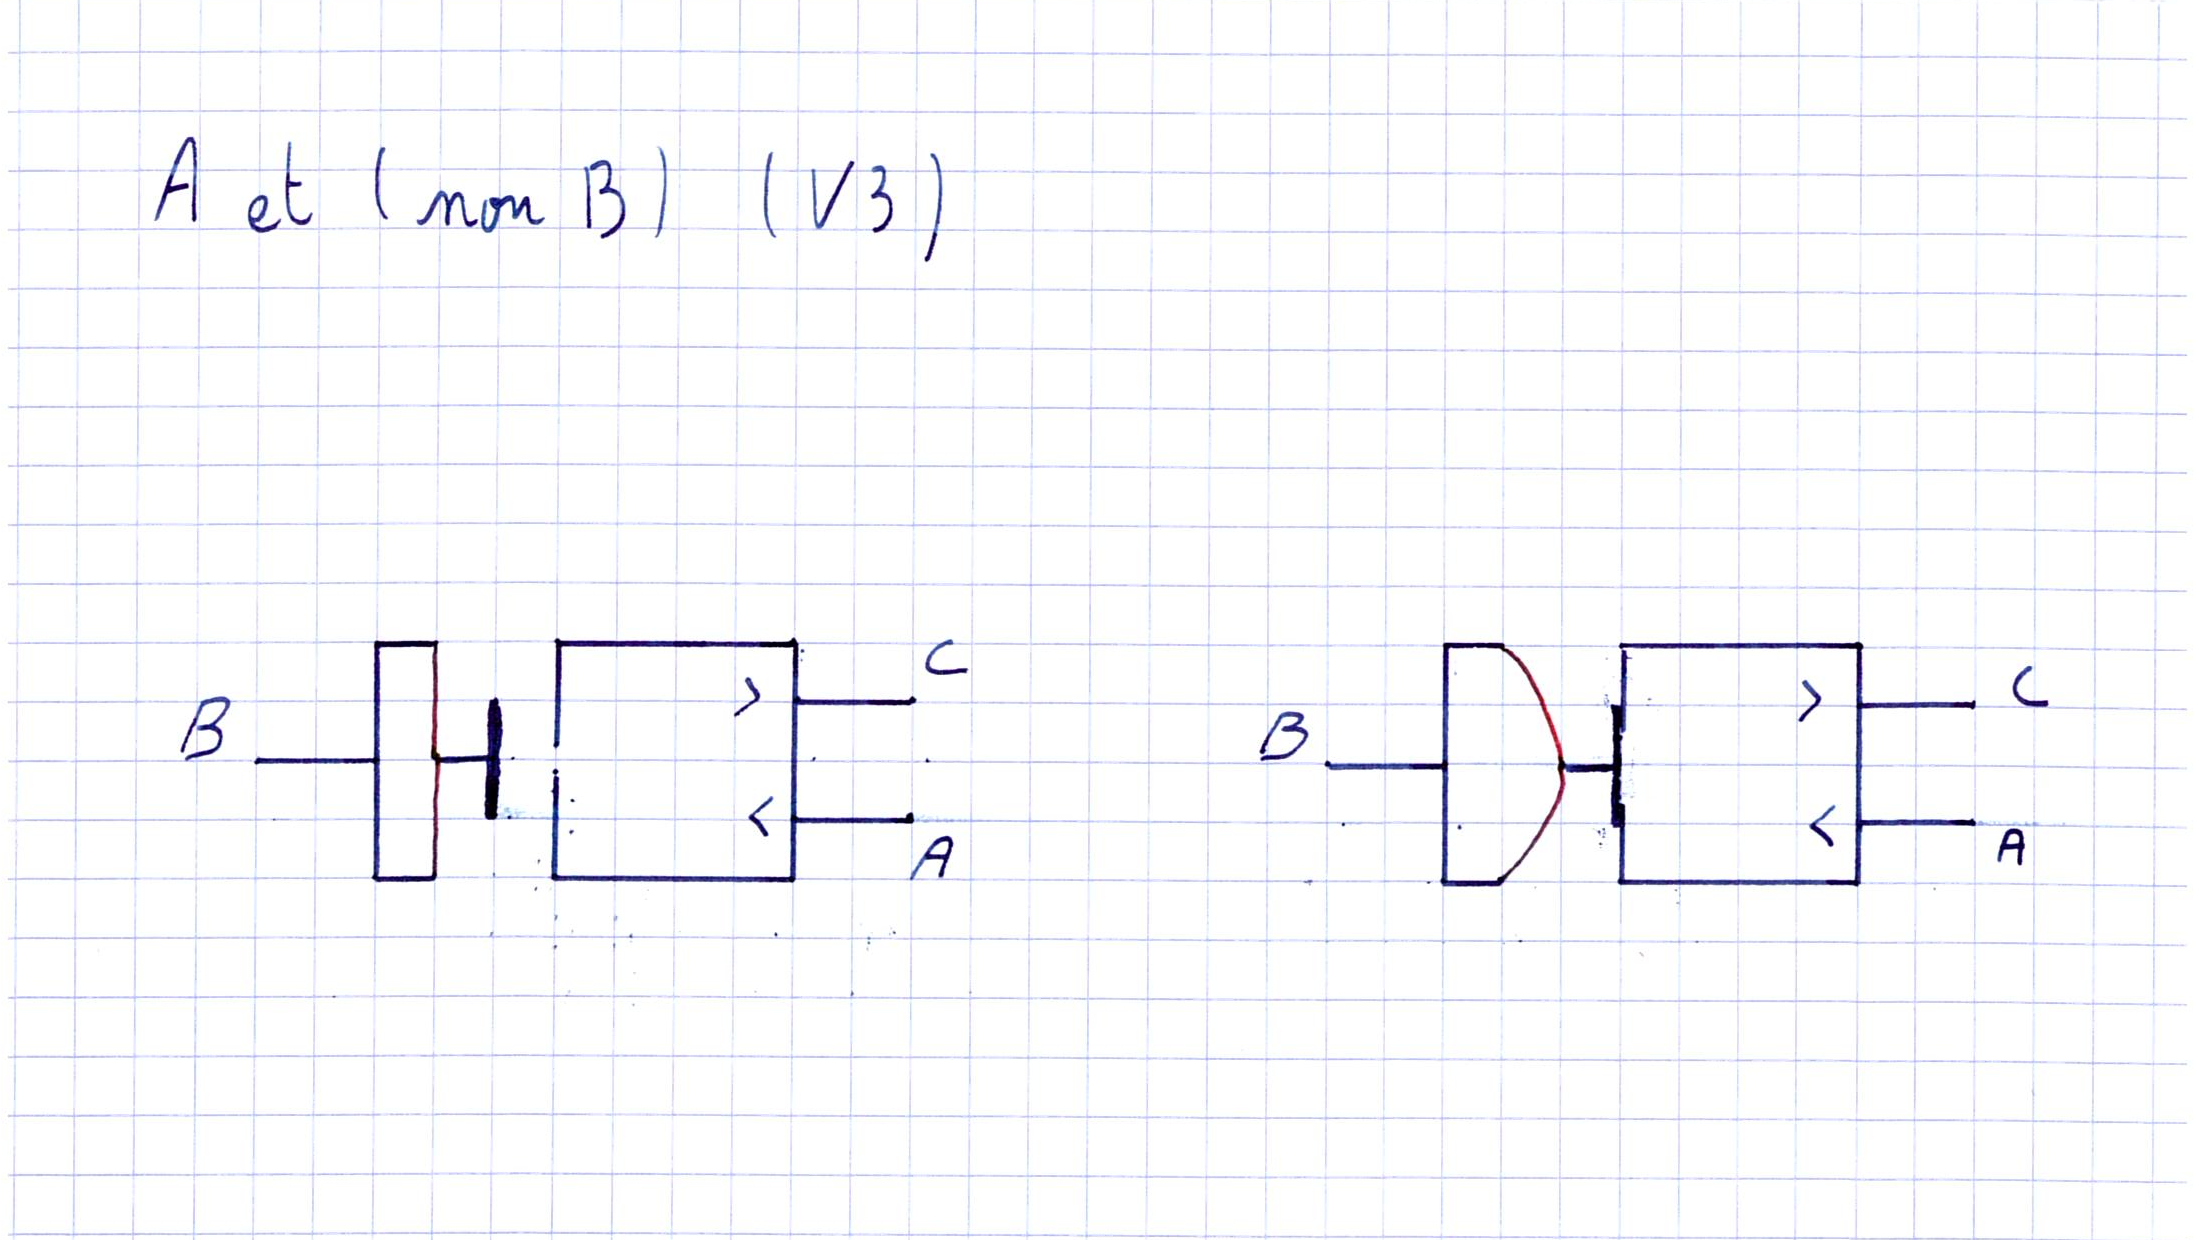 A et (non B) (V3)
B > C
< A
B > C
< A